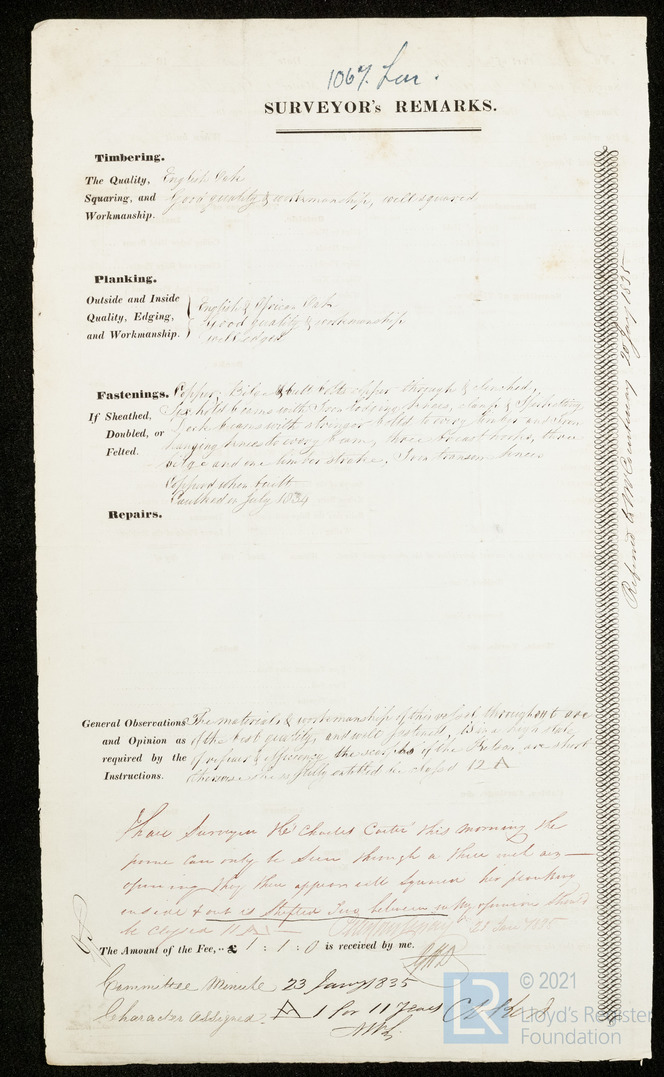 1067. Lon.
SURVEYOR's REMARKS.
Timbering.
The Quality, English Oak
Squaring, and Good quality & workmanship, well squared
Workmanship.
Planking.
Outside and Inside English & African Oak
Quality, Edging, Good quality & workmanship
and Workmanship. well edged
Fastenings. Copper, Bilge & butt bolts copper through & clenched,
If Sheathed, hold beams with Iron lodging knees,
Doubled, or Deck beams with stringer bolted to every timber and Iron
Felted. hanging knees to every beam, three breast hooks, three
bilge and one limber strakes, Iron transom knees
Coppered when built
Caulked in July 1834
Repairs.
General Observations The materials & workmanship of this vessel throughout are
and Opinion as of the best quality, and well fastened,
required by the of repair & efficiency the of the are short
Instructions. otherwise she is fully entitled to be classed 12 A
I have Surveyed the Charles Carter this morning the
frame can only be Seen through a three inch air
opening they there appear well Squared her planking
inside & out is Shifted Two between in my opinion Should
be Classed 11 A 23 Jany 1835
The Amount of the Fee, £ 1 : 1 : 0 is received by me.
Committee Minute 23 Jany 1835
Character assigned A 1 for 11 Years
Referred to Mr Courtenay 20 Jany 1835
© 2021
LR
Lloyd's Register
Foundation